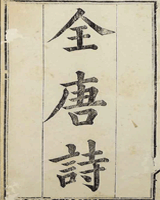 全唐詩